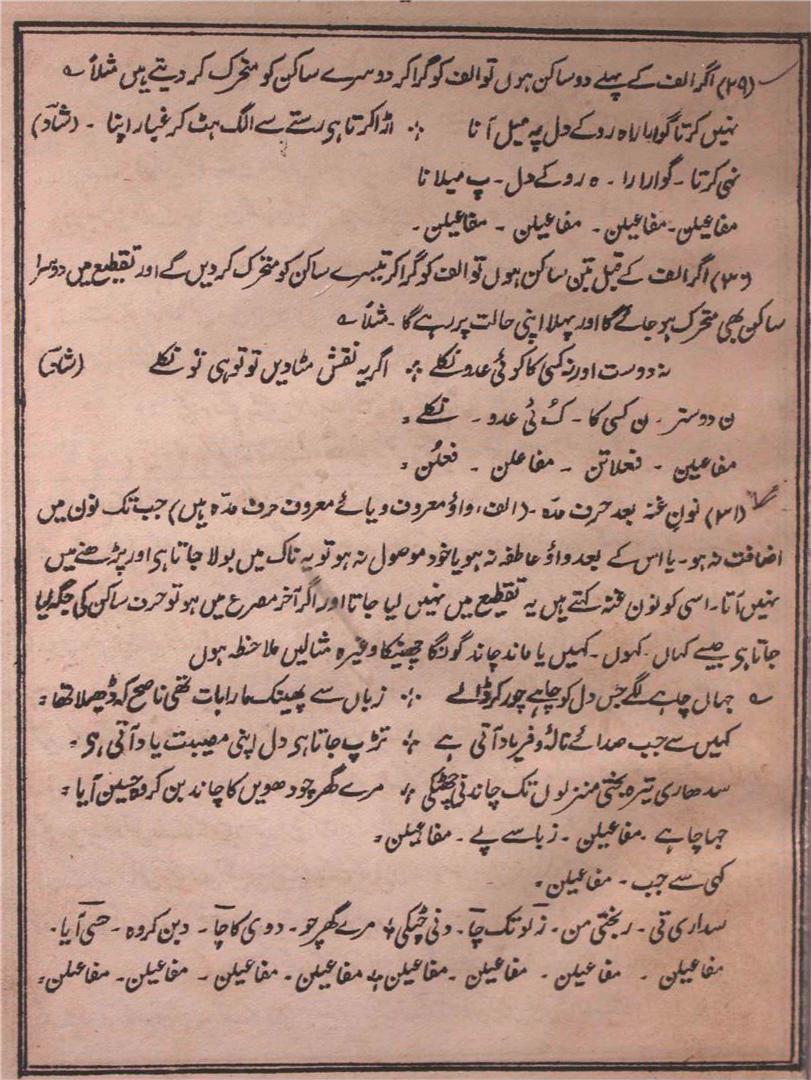 (۲۹) اگر الف کے پہلے دو ساکن ہوں تو الف کو گرا کر دوسرے ساکن کو متحرک کر دیتے ہیں مثلاً ؎
نہیں کرتا گوارا راہ رو کے دل پہ میل آنا ؞ اڑا کرتا ہی رستے سے الگ ہٹ کر غبار اپنا ۔ (شاد)
نہی کرتا ۔ گوارا را ۔ ہ رو کے دل ۔ پ میلا نا
مفاعیلن ۔ مفاعیلن ۔ مفاعیلن ۔ مفاعیلن ۔
(۳۰) اگر الف کے قبل تین ساکن ہوں تو الف کو گرا کر تیسرے ساکن کو متحرک کر دیں گے اور تقطیع میں دوسرا
ساکن بھی متحرک ہو جائے گا اور پہلا اپنی حالت پر رہے گا ۔ مثلاً ؎
نہ دوست اور نہ کسی کا کوئی عدو نکلے ؞ اگر یہ نقش مٹا دیں تو تو ہی تو نکلے (شاد)
ن دوستر ۔ ن کسی کا ۔ کُ ئی عدو ۔ نکلے ؞
مفاعیلن ۔ فعلاتن ۔ مفاعلن ۔ فعلُن ؞
(۳۱) نونِ غنہ بعد حرف مدہ ۔ (الف، واؤ معروف و یائے معروف حرف مدّہ ہیں) جب تک نون میں
اضافت نہ ہو ۔ یا اس کے بعد واؤ عاطفہ نہ ہو یا خود موصول نہ ہو تو یہ ناک میں بولا جاتا ہی اور پڑھنے میں
نہیں آتا ۔ اسی کو نون غنہ کہتے ہیں یہ تقطیع میں نہیں لیا جاتا اور اگر آخر مصرع میں ہو تو حرف ساکن کی جگہ لیا
جاتا ہی جیسے کہاں ۔ کہوں ۔ کہیں یا ماند چاند گونگا چھینکا وغیرہ مثالیں ملاحظہ ہوں
؎ جہاں چاہے لگے جس دل کو چاہے چور کر ڈالے ؞ زباں سے پھینک مارا بات تھی ناصح کہ ڈھیلا تھا ؞
کہیں سے جب صدائے نالۂ و فریاد آتی ہے ؞ تڑپ جاتا ہی دل اپنی مصیبت یاد آتی ہی ؞
سدھاری تیرہ بختی منزلوں تک چاندنی چھٹکی ؞ مرے گھر چودھویں کا چاند بن کر وہ حسین آیا ؞
جہا چاہے ۔ مفاعیلن ۔ زبا سے پے ۔ مفاعیلن ؞
کہی سے جب ۔ مفاعیلن ؞
سداری تی ۔ ربختی من ۔ زلو تک چا ۔ دنی چٹکی ؞ مرے گھر چو ۔ دوی کا چا ۔ دبن کروہ ۔ حسی آیا ۔
مفاعیلن ۔ مفاعیلن ۔ مفاعیلن ۔ مفاعیلن ؞ مفاعیلن ۔ مفاعیلن ۔ مفاعیلن ۔ مفاعیلن ؞